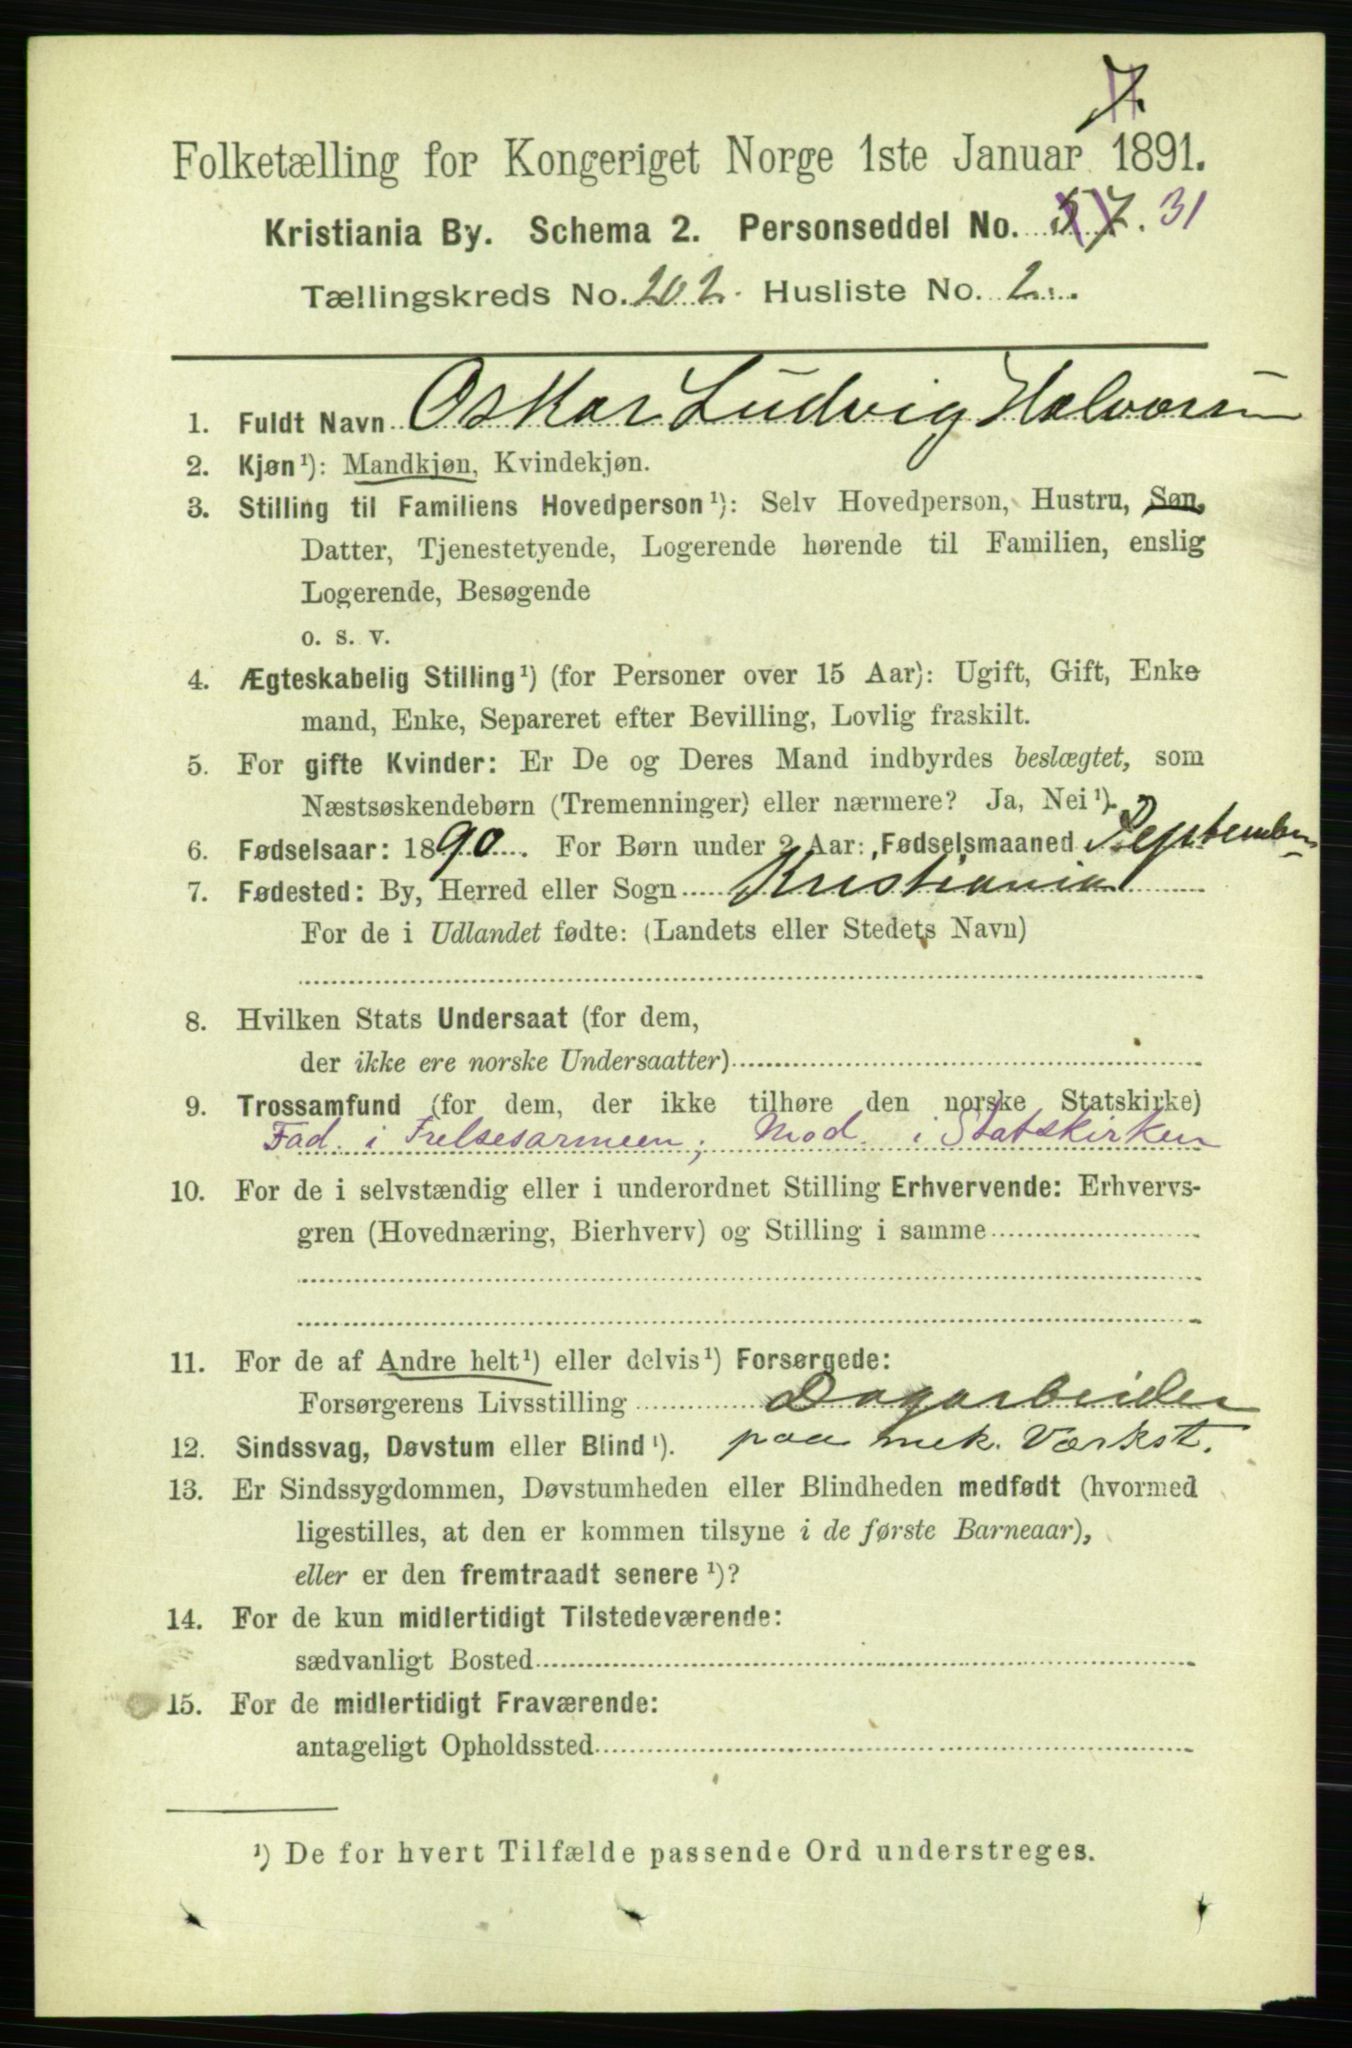 7.
Folketælling for Kongeriget Norge 1ste Januar 1891.
Kristiania By. Schema 2. Personseddel No. 57. 31
Tællingskreds No. 202. Husliste No. 2.
1. Fuldt Navn Oskar Ludvig Halvorsen
2. Kjøn¹): Mandkjøn, Kvindekjøn.
3. Stilling til Familiens Hovedperson¹): Selv Hovedperson, Hustru, Søn,
Datter, Tjenestetyende, Logerende hørende til Familien, enslig
Logerende, Besøgende
o. s. v.
4. Ægteskabelig Stilling¹) (for Personer over 15 Aar): Ugift, Gift, Enke
mand, Enke, Separeret efter Bevilling, Lovlig fraskilt.
5. For gifte Kvinder: Er De og Deres Mand indbyrdes beslægtet, som
Næstsøskendebørn (Tremenninger) eller nærmere? Ja, Nei¹).
6. Fødselsaar: 1890. For Børn under 2 Aar: Fødselsmaaned September
7. Fødested: By, Herred eller Sogn Kristiania
For de i Udlandet fødte: (Landets eller Stedets Navn)
8. Hvilken Stats Undersaat (for dem,
der ikke ere norske Undersaatter)
9. Trossamfund (for dem, der ikke tilhøre den norske Statskirke)
Fad. i Frelsesarmeen; Mod. i Statskirken
10. For de i selvstændig eller i underordnet Stilling Erhvervende: Erhvervs-
gren (Hovednæring, Bierhverv) og Stilling i samme
11. For de af Andre helt¹) eller delvis¹) Forsørgede:
Forsørgerens Livsstilling Dagarbeider
12. Sindssvag, Døvstum eller Blind¹). paa mek. Værkst.
13. Er Sindssygdommen, Døvstumheden eller Blindheden medfødt (hvormed
ligestilles, at den er kommen tilsyne i de første Barneaar),
eller er den fremtraadt senere¹)?
14. For de kun midlertidigt Tilstedeværende:
sædvanligt Bosted
15. For de midlertidigt Fraværende:
antageligt Opholdssted
¹) De for hvert Tilfælde passende Ord understreges.